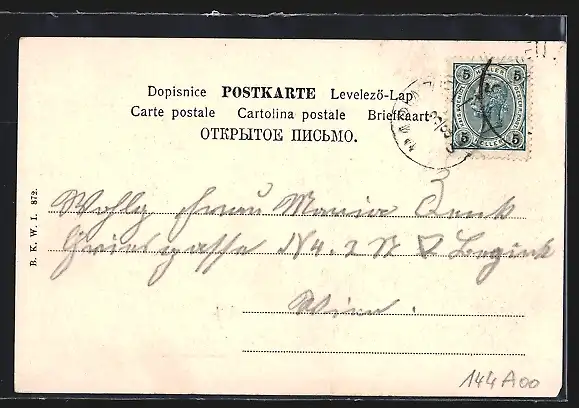 Dopisnice POSTKARTE Levelező-Lap
Carte postale Cartolina postale Briefkaart
ОТКРЫТОЕ ПИСЬМО.
5 5
5 5
B. K. W. I. 872.
Wohlg Frau Maria
Griesgasse No. 2 V Bezirk
Wien.
144A00